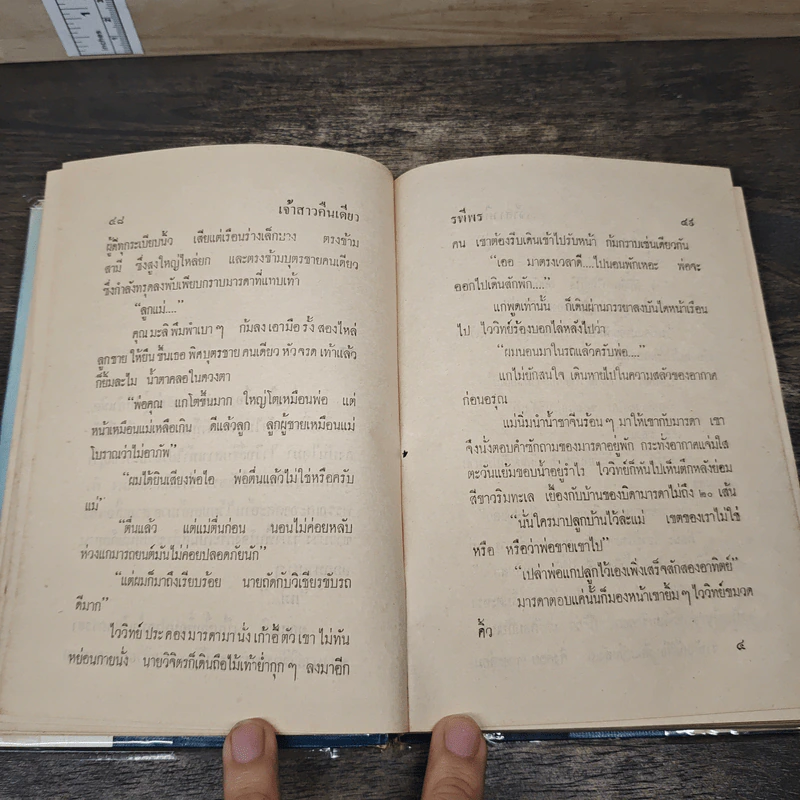 ๔๘ เจ้าสาวคืนเดียว
ผู้ดีทุกระเบียบนิ้ว เสียแต่เรือนร่างเล็กบาง ตรงข้าม
สามี ซึ่งสูงใหญ่ไหล่ยก และตรงข้ามบุตรชายคนเดียว
ซึ่งกำลังทรุดลงพับเพียบกราบมารดาที่แทบเท้า
“ลูกแม่....”
คุณมะลิ พึมพำเบา ๆ ก้มลง เอามือ รั้ง สองไหล่
ลูกชาย ให้ยืน ขึ้นเธอ พิศ บุตรชาย คนเดียว หัว จรด เท้าแล้ว
ก็ยิ้มละไม น้ำตาคลอในดวงตา
“พ่อคุณ แกโตขึ้นมาก ใหญ่โตเหมือนพ่อ แต่
หน้าเหมือนแม่เหลือเกิน ดีแล้วลูก ลูกผู้ชายเหมือนแม่
โบราณว่าไม่อาภัพ”
“ผมได้ยินเสียงพ่อไอ พ่อตื่นแล้วไม่ใช่หรือครับ
แม่”
“ตื่นแล้ว แต่แม่ตื่นก่อน นอนไม่ค่อยหลับ
ห่วงแกมารถยนต์มันไม่ค่อยปลอดภัยนัก”
“แต่ผมก็มาถึงเรียบร้อย นายถัดกับวิเชียรขับรถ
ดีมาก”
ไววิทย์ ประคอง มารดามา นั่ง เก้าอี้ ตัว เขา ไม่ทัน
หย่อนกายนั่ง นายวิจิตรก็เดินถือไม้เท้าย่ำกุก ๆ ลงมาอีก
รพีพร ๔๙
คน เขาต้องรีบเดินเข้าไปรับหน้า ก้มกราบเช่นเดียวกัน
“เออ มาตรงเวลาดี....ไปนอนพักเหอะ พ่อจะ
ออกไปเดินสักพัก....”
แกพูดเท่านั้น ก็เดินผ่านภรรยาลงบันไดหน้าเรือน
ไป ไววิทย์ร้องบอกไล่หลังไปว่า
“ผมนอนมาในรถแล้วครับพ่อ....”
แกไม่ยักสนใจ เดินหายไปในความสลัวของอากาศ
ก่อนอรุณ
แม่นิ่มนำน้ำชาจีนร้อน ๆ มาให้เขากับมารดา เขา
จึงนั่งตอบคำซักถามของมารดาอยู่พัก กระทั่งอากาศแจ่มใส
ตะวันแย้มขอบน้ำอยู่รำไร ไววิทย์ก็หันไปเห็นตึกหลังย่อม
สีขาวริมทะเล เยื้องกับบ้านของบิดามารดาไม่ถึง ๒๐ เส้น
“นั่นใครมาปลูกบ้านไว้ล่ะแม่ เขตของเราไม่ใช่
หรือ หรือว่าพ่อขายเขาไป”
“เปล่าพ่อแกปลูกไว้เองเพิ่งเสร็จสักสองอาทิตย์”
มารดาตอบแค่นั้นก็มองหน้าเขายิ้ม ๆ ไววิทย์ขมวด
คิ้ว
๔